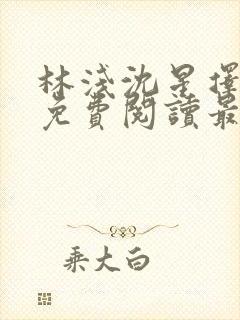 林淺沈星擇
免費閱讀最
乘大白